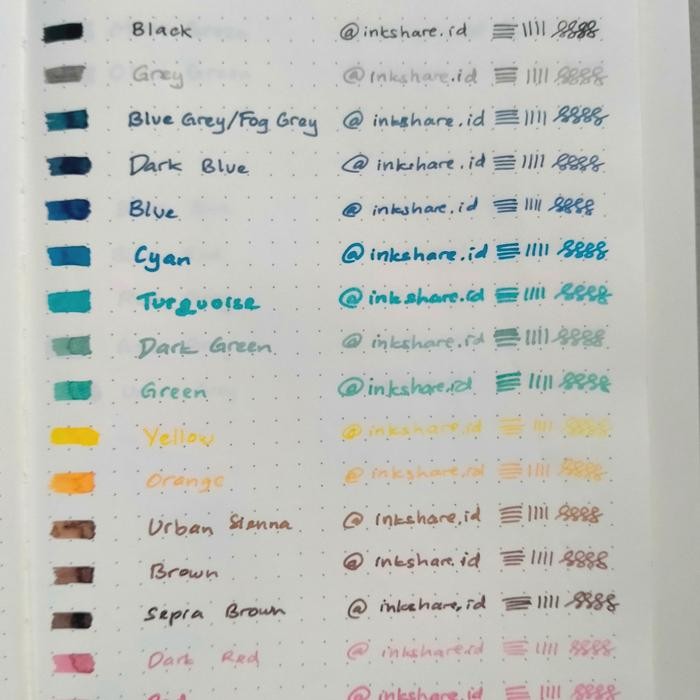 Black @inkshare.id
Grey @inkshare.id
Blue Grey/Fog Gray @inkshare.id
Dark Blue @inkshare.id
Blue @inkshare.id
Cyan @inkshare.id
Turquoise @inkshare.id
Dark Green @inkshare.id
Green @inkshare.id
Yellow @inkshare.id
Orange @inkshare.id
Urban Sienna @inkshare.id
Brown @inkshare.id
Sepia Brown @inkshare.id
Dark Red @inkshare.id
@inkshare.id